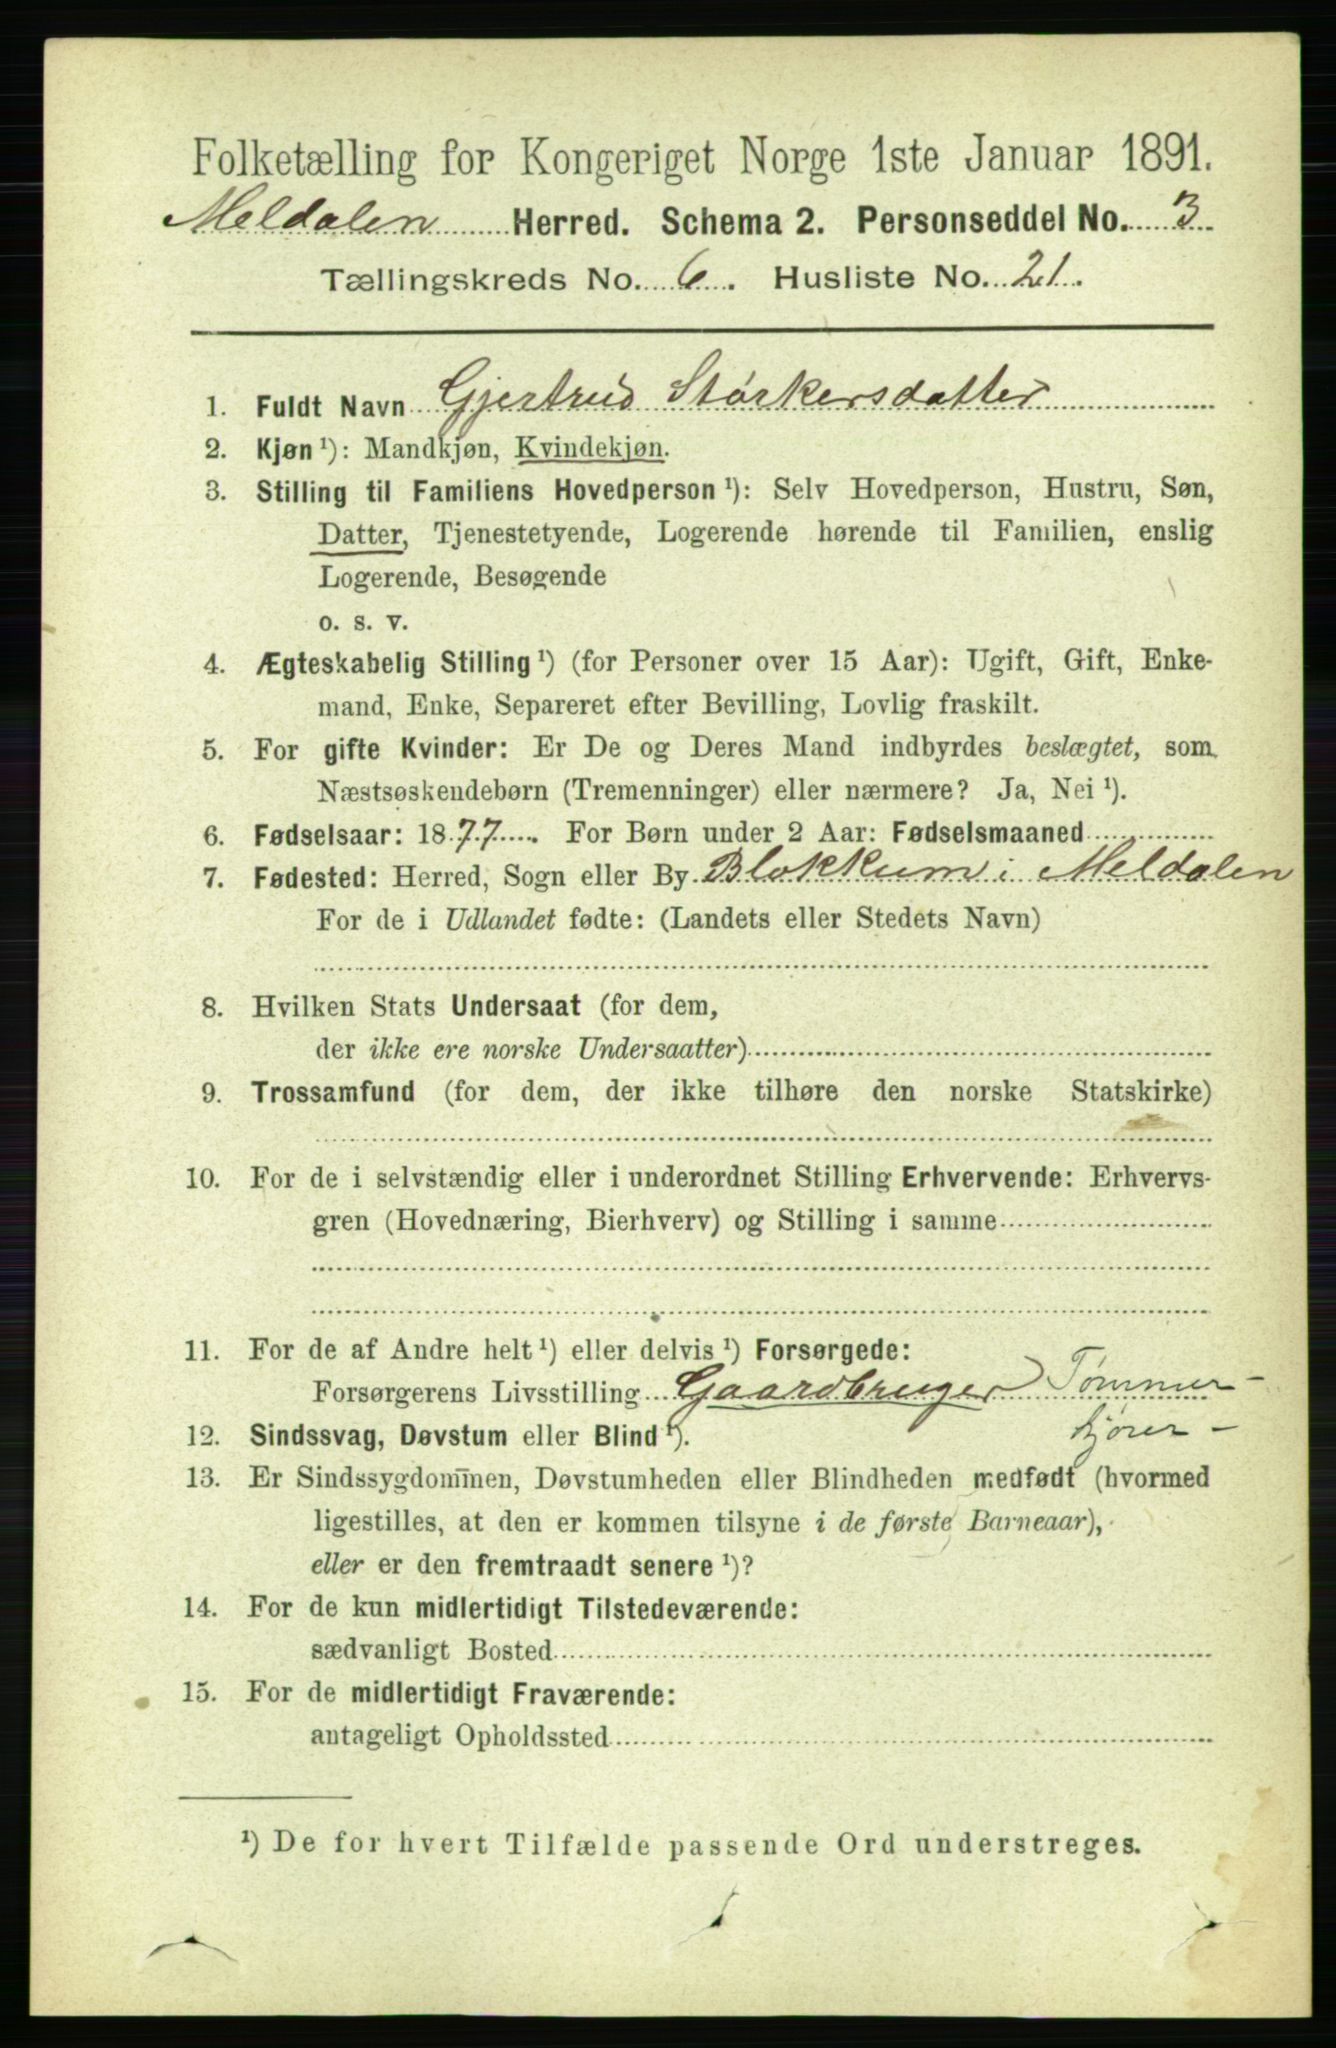 Folketælling for Kongeriget Norge 1ste Januar 1891.
Meldalen Herred. Schema 2. Personseddel No. 3
Tællingskreds No. 6. Husliste No. 21.
1. Fuldt Navn Gjertrud Størkersdatter
2. Kjøn ¹): Mandkjøn, Kvindekjøn.
3. Stilling til Familiens Hovedperson ¹): Selv Hovedperson, Hustru, Søn,
Datter, Tjenestetyende, Logerende hørende til Familien, enslig
Logerende, Besøgende
o. s. v.
4. Ægteskabelig Stilling ¹) (for Personer over 15 Aar): Ugift, Gift, Enke-
mand, Enke, Separeret efter Bevilling, Lovlig fraskilt.
5. For gifte Kvinder: Er De og Deres Mand indbyrdes beslægtet, som
Næstsøskendebørn (Tremenninger) eller nærmere? Ja, Nei ¹).
6. Fødselsaar: 1877. For Børn under 2 Aar: Fødselsmaaned
7. Fødested: Herred, Sogn eller By Blokkum i Meldalen
For de i Udlandet fødte: (Landets eller Stedets Navn)
8. Hvilken Stats Undersaat (for dem,
der ikke ere norske Undersaatter)
9. Trossamfund (for dem, der ikke tilhøre den norske Statskirke)
10. For de i selvstændig eller i underordnet Stilling Erhvervende: Erhvervs-
gren (Hovednæring, Bierhverv) og Stilling i samme
11. For de af Andre helt ¹) eller delvis ¹) Forsørgede:
Forsørgerens Livsstilling Gaardbruger Tømmer-
kjører -
12. Sindssvag, Døvstum eller Blind ¹).
13. Er Sindssygdommen, Døvstumheden eller Blindheden medfødt (hvormed
ligestilles, at den er kommen tilsyne i de første Barneaar),
eller er den fremtraadt senere ¹)?
14. For de kun midlertidigt Tilstedeværende:
sædvanligt Bosted
15. For de midlertidigt Fraværende:
antageligt Opholdssted
¹) De for hvert Tilfælde passende Ord understreges.